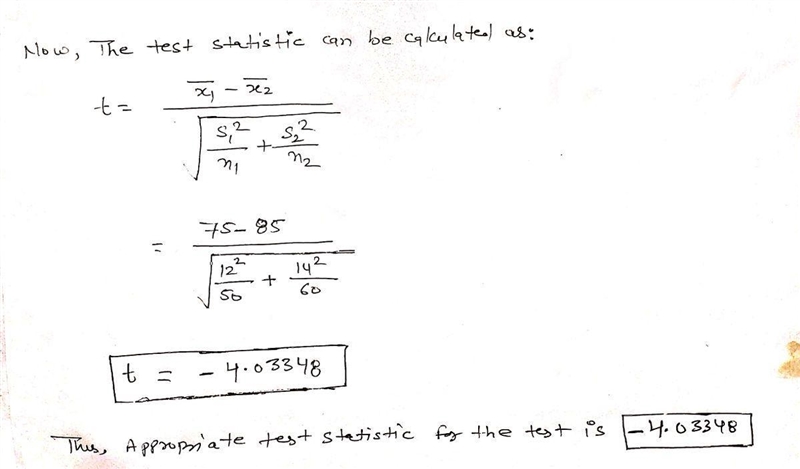 Now, The test statistic can be calculated as:
t = (x̄₁ - x̄₂) / √(s₁²/n₁ + s₂²/n₂)
= (75 - 85) / √(12²/50 + 14²/60)
t = - 4.03348
Thus, Appropriate test statistic for the test is -4.03348